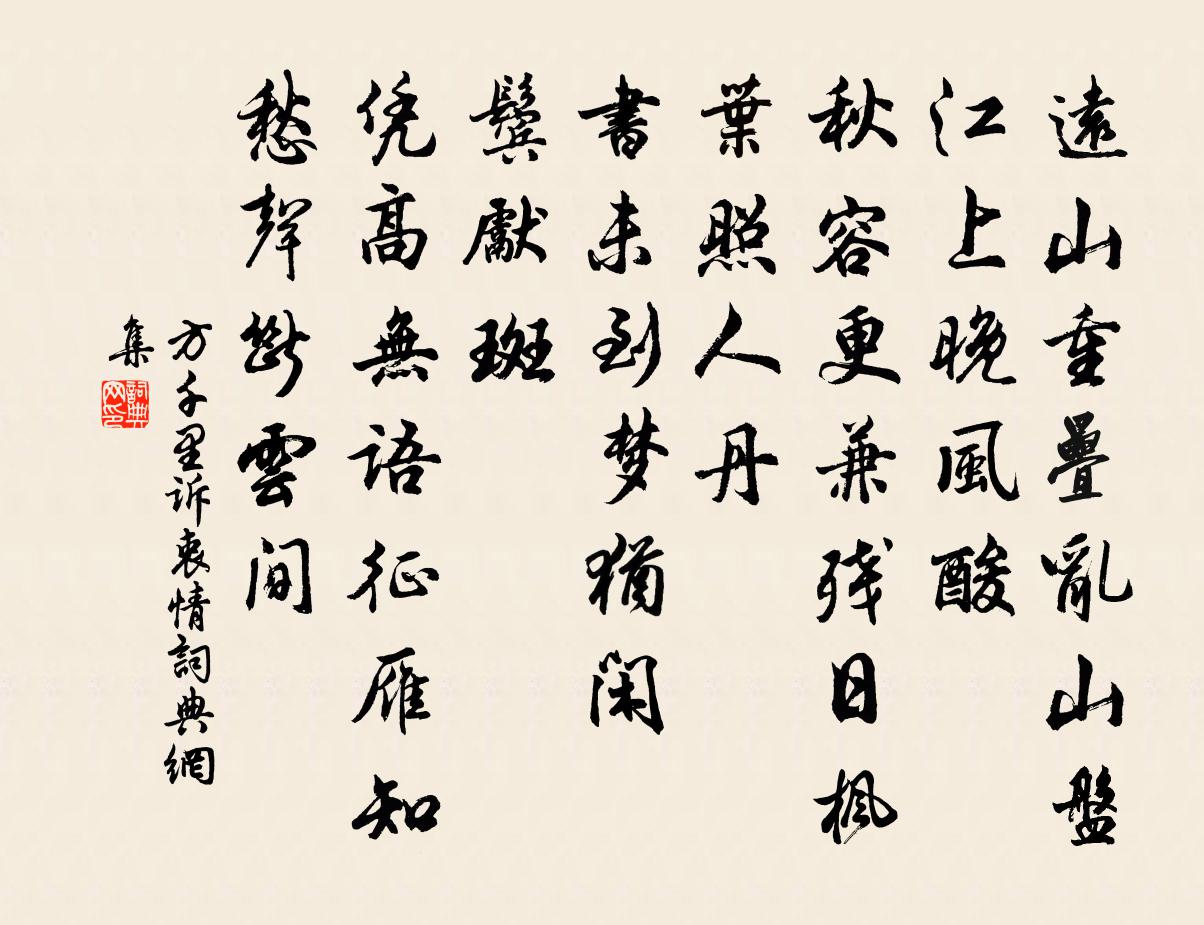 遠山重疊亂山盤
江上晚風酸
秋容更兼残日楓
葉照人丹
書未到梦猶闲
鬓獻斑
凭高無語征雁知
愁聲斷雲間
方千里诉衷情詞典網
集
詞典網印